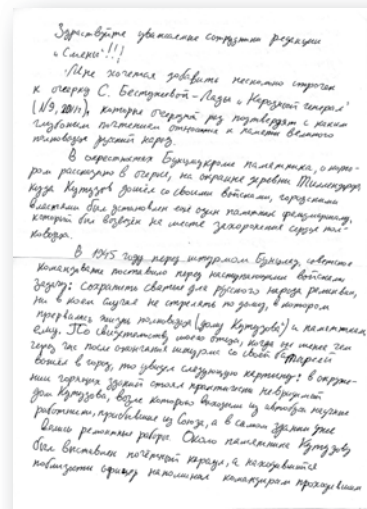 Здравствуйте уважаемые сотрудники редакции
"Смены"!!!
Мне хочется добавить несколько строчек
к очерку С. Бестужевой-Лады "Народный генерал"
(№9, 2011), которые очередной раз подтвердят с каким
глубоким почтением относится к памяти великого
полководца русский народ.
В окрестностях Бунцлау кроме памятника, о кото-
ром рассказано в очерке, на окраине деревни Тиллендорф
куда Кутузов дошёл со своими войсками, городскими
властями был установлен ещё один памятник фельдмаршалу,
который был возведён на месте захоронения сердца пол-
ководца.
В 1945 году перед штурмом Бунцлау, советское
командование поставило перед наступающими войсками
задачу: Сохранить святые для русского народа реликвии,
ни в коем случае не стрелять по дому, в котором
прервалась жизнь полководца (дому Кутузова) и памятникам
ему. По свидетельству моего отца, когда он менее чем
через час после окончания штурма со своей батареей
вошёл в город, то увидел следующую картину: в окруже-
нии горящих зданий стоял практически невредимый
дом Кутузова, возле которого выходили из автобуса научные
работники, прибывшие из Союза, а в самом здании уже
велись ремонтные работы. Около памятника Кутузову
был выставлен почётный караул, а находившийся
поблизости офицер напоминал командирам проходившим